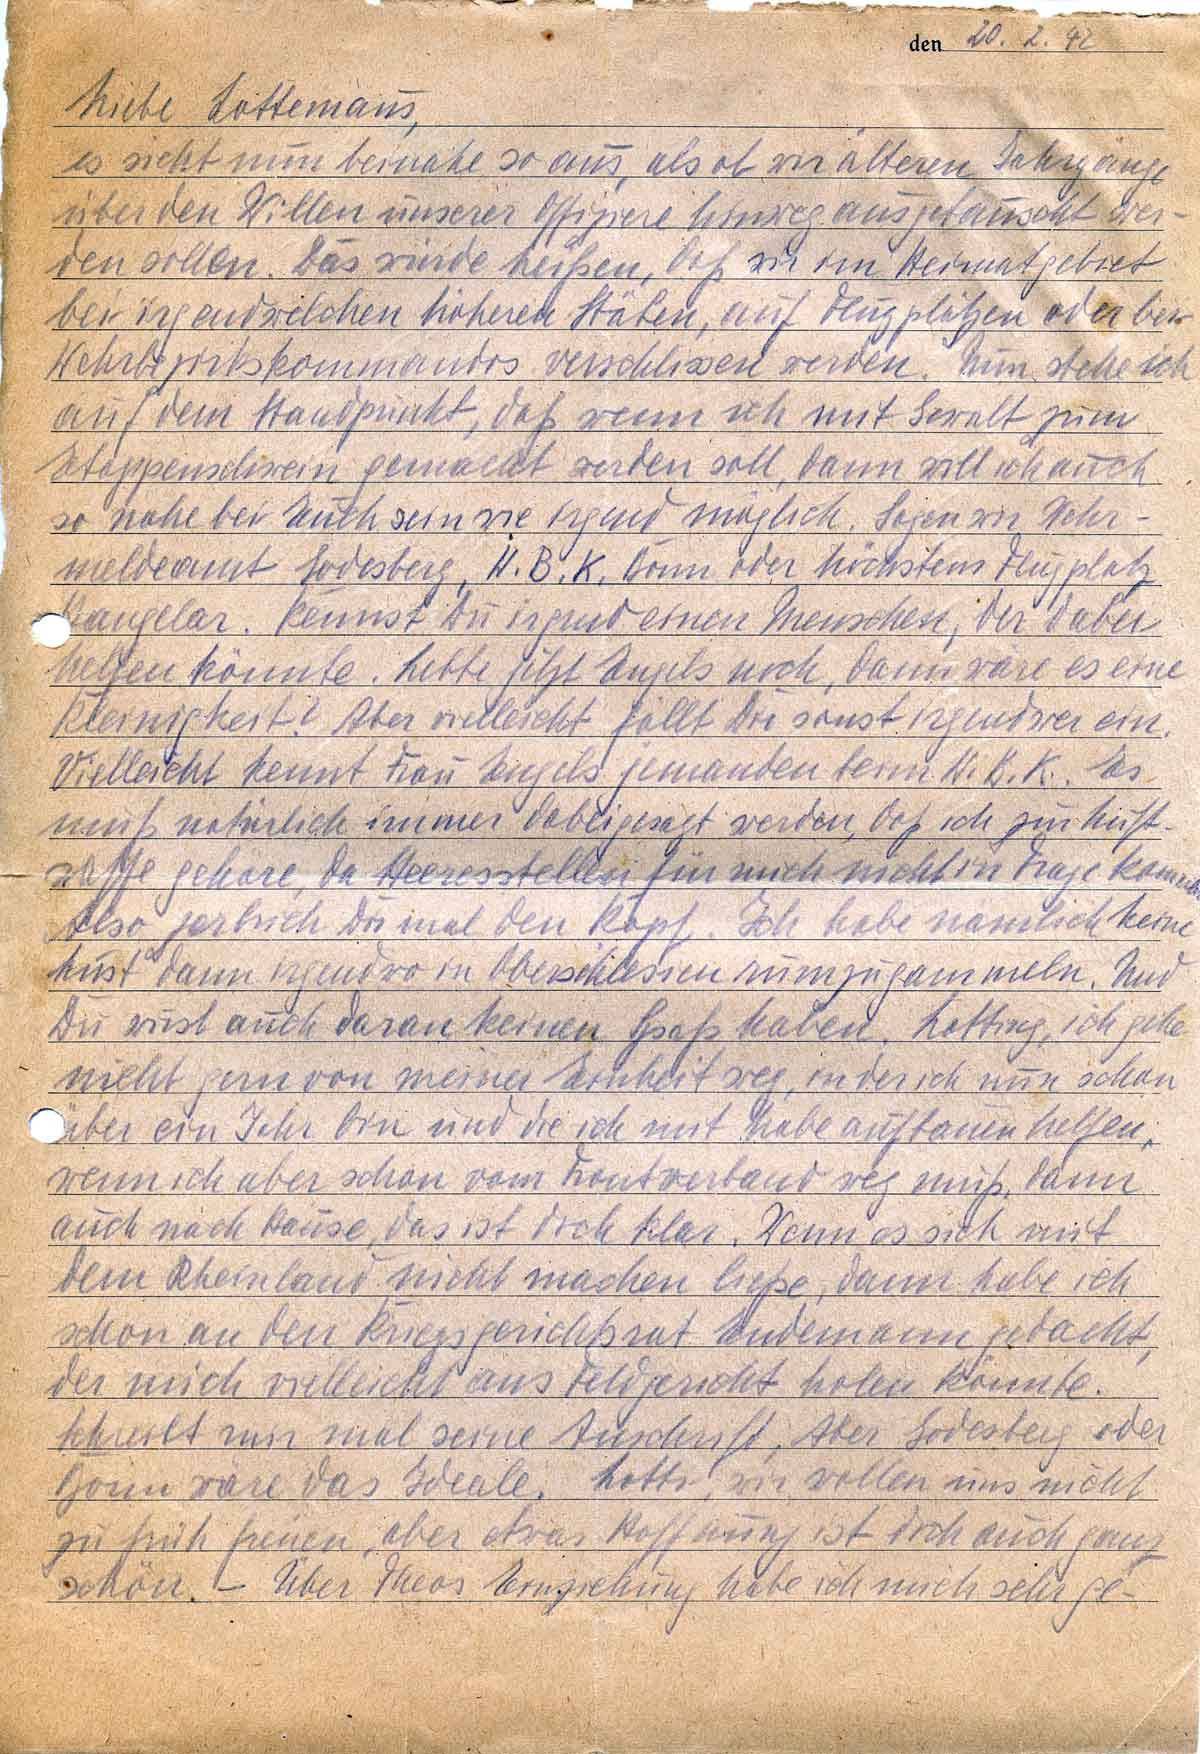 den 20. 2. 42
Liebe Lottemaus,
es sieht nun beinahe so aus, als ob wir älteren Jahrgänge
über den Willen unserer Offiziere hinweg ausgetauscht wer-
den sollen. Das würde heißen, daß wir im Heimatgebiet
bei irgendwelchen höheren Stäben, auf Flugplätzen oder bei
Wehrbezirkskommandos verschlissen werden. Nun stehe ich
auf dem Standpunkt, daß wenn ich mit Gewalt zum
Etappenschwein gemacht werden soll, dann will ich auch
so nahe bei Euch sein wie irgend möglich. Sagen wir Wehr-
meldeamt Godesberg, W.B.K. Bonn oder höchstens Flugplatz
Hangelar. Kennst Du irgend einen Menschen, der dabei
helfen könnte. Lebte jetzt Engels noch, dann wäre es eine
Kleinigkeit! Aber vielleicht fällt Dir sonst irgendwer ein.
Vielleicht kennt Frau Engels jemanden beim W.B.K.. Es
muß natürlich immer dabeigesagt werden, daß ich zur Luft-
waffe gehöre, da Heeresstellen für mich nicht in Frage kommen.
Also zerbrich Dir mal den Kopf. Ich habe nämlich keine
Lust dann irgendwo in Oberschlesien rumzugammeln. Und
Du wirst auch daran keinen Spaß haben. Lotting, ich gehe
nicht gern von meiner Einheit weg, in der ich nun schon
über ein Jahr bin und die ich mit habe aufbauen helfen,
wenn ich aber schon vom Frontverband weg muß, dann
auch nach Hause, das ist doch klar. Wenn es sich mit
dem Rheinland nicht machen ließe, dann habe ich
schon an den Kriegsgerichtsrat Endemann gedacht,
der mich vielleicht ans Feldgericht holen könnte.
Schreibt mir mal seine Anschrift. Aber Godesberg oder
Bonn wäre das Ideale. Lotti, wir wollen uns nicht
zu früh freuen, aber etwas Hoffnung ist doch auch ganz
schön. – Über Theos Einziehung habe ich mich sehr ge-